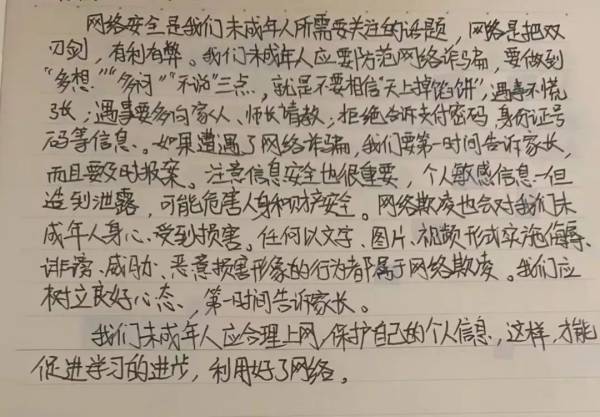 网络安全是我们未成年人所需要关注的话题，网络是把双
刃剑，有利有弊。我们未成年人应要防范网络诈骗，要做到
“多想”“多问”“不说”三点，就是不要相信“天上掉馅饼”，遇事不慌
张；遇事要多向家人、师长请教；拒绝告诉支付密码，身份证号
码等信息。如果遭遇了网络诈骗，我们要第一时间告诉家长，
而且要及时报案。注意信息安全也很重要，个人敏感信息一但
造到泄露，可能危害人身和财产安全。网络欺凌也会对我们未
成年人身心受到损害。任何以文字、图片、视频形式实施侮辱、
诽谤、威胁、恶意损害形象的行为都属于网络欺凌。我们应
树立良好心态，第一时间告诉家长。
我们未成年人应合理上网，保护自己的个人信息，这样，才能
促进学习的进步，利用好了网络。